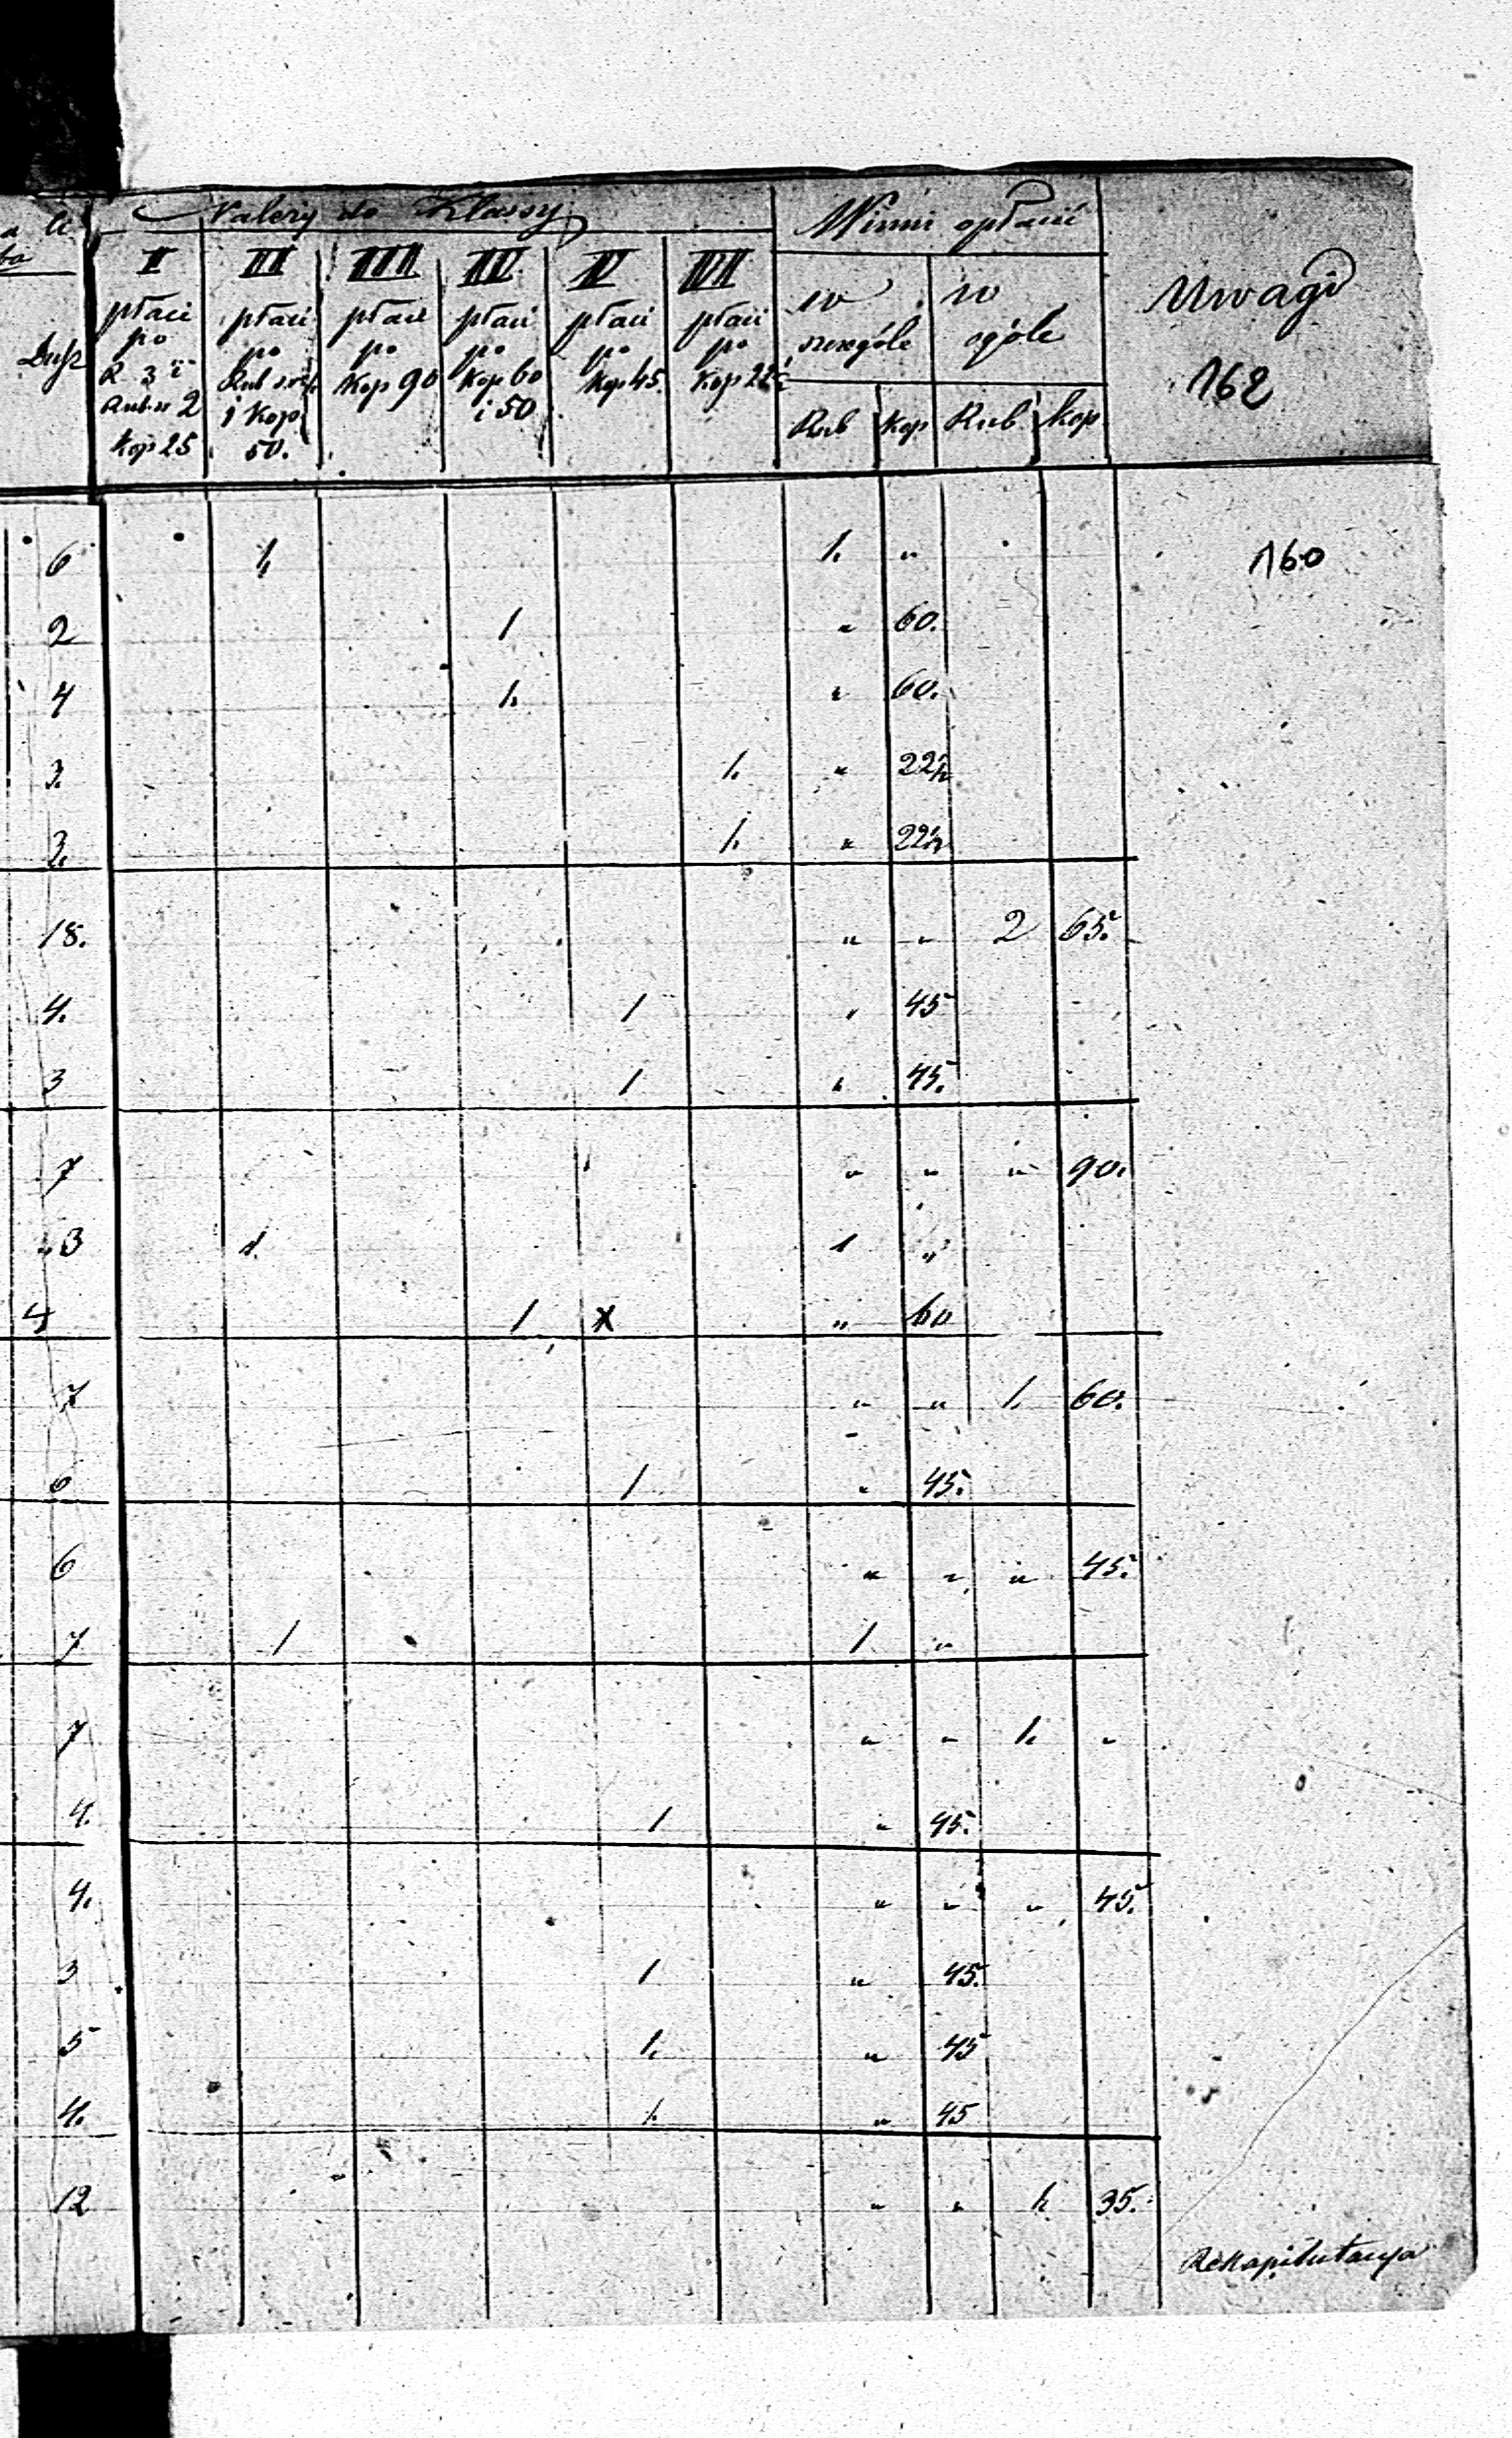 Należy do Klassy
Winni opłacić
Uwagi
162
Dusz
I
płaci
po
R 3 i
Rub sr 2
Kop 25
II
płaci
po
Rub sr
i Kop
50.
III
płaci
po
Kop 90
IV
płaci
po
Kop 60
i 50
V
płaci
po
Kop 45.
VI
płaci
po
Kop 22½
w
szczególe
w
ogóle
Rub Kop Rub kop
6 1. 1. „ 160
2 1 „ 60.
4 1. „ 60.
3. 1. „ 22½
3. 1. „ 22½
18. „ „ 2 65.
4. 1 „ 45
3 1 „ 45.
7 „ „ „ 90.
3 1. 1 „
4 1 x „ 60
7 „ „ 1. 60.
6 1 „ 45.
6 „ „ „ 45.
7 1 1 „
7 „ „ 1. „
4. 1 „ 45.
4. „ „ „ 45.
3 1 „ 45.
5 1. „ 45
4. 1. „ 45
12 „ „ 1. 35.
Rekapitulacya